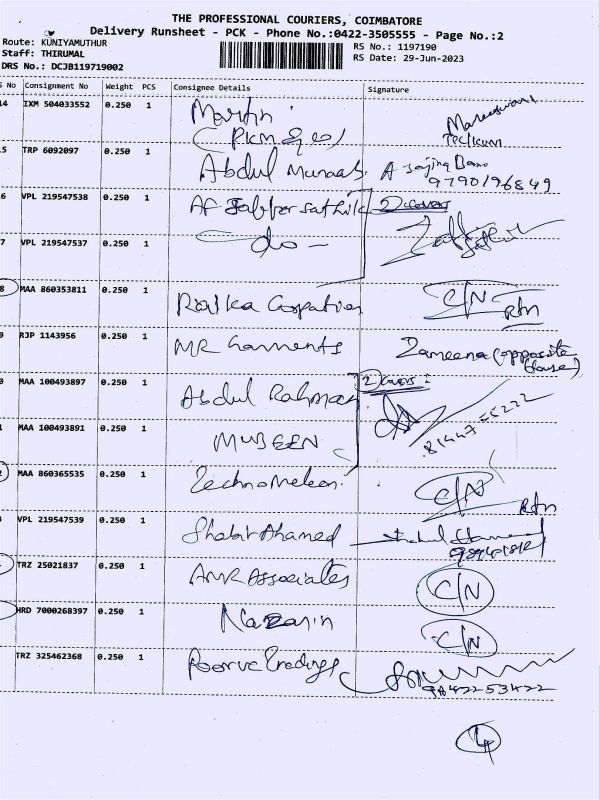 THE PROFESSIONAL COURIERS, COIMBATORE
Delivery Runsheet - PCK - Phone No.:0422-3505555 - Page No.:2
Route: KUNIYAMUTHUR
Staff: THIRUMAL
DRS No.: DCJB119719002
RS No.: 1197190
RS Date: 29-Jun-2023
S No Consignment No Weight PCS Consignee Details Signature
14 IXM 504033552 0.250 1 Martin
5 TRP 6092097 0.250 1 Abdul
9790196849
6 VPL 219547538 0.250 1 AF 2 covers
7 VPL 219547537 0.250 1 do -
8 MAA 860353811 0.250 1 C/N Rtn
9 RJP 1143956 0.250 1 MR Garments Zameena (opposite House)
0 MAA 100493897 0.250 1 Abdul Rahman 2 covers:
1 MAA 100493891 0.250 1 MUBEEN
2 MAA 860365535 0.250 1 C/N Rtn
VPL 219547539 0.250 1 Shabir Ahamed
TRZ 25021837 0.250 1 AMR Associates C/N
HRD 7000268397 0.250 1 Nazarin C/N
TRZ 325462368 0.250 1 Poorva Tradings
9842253422
4